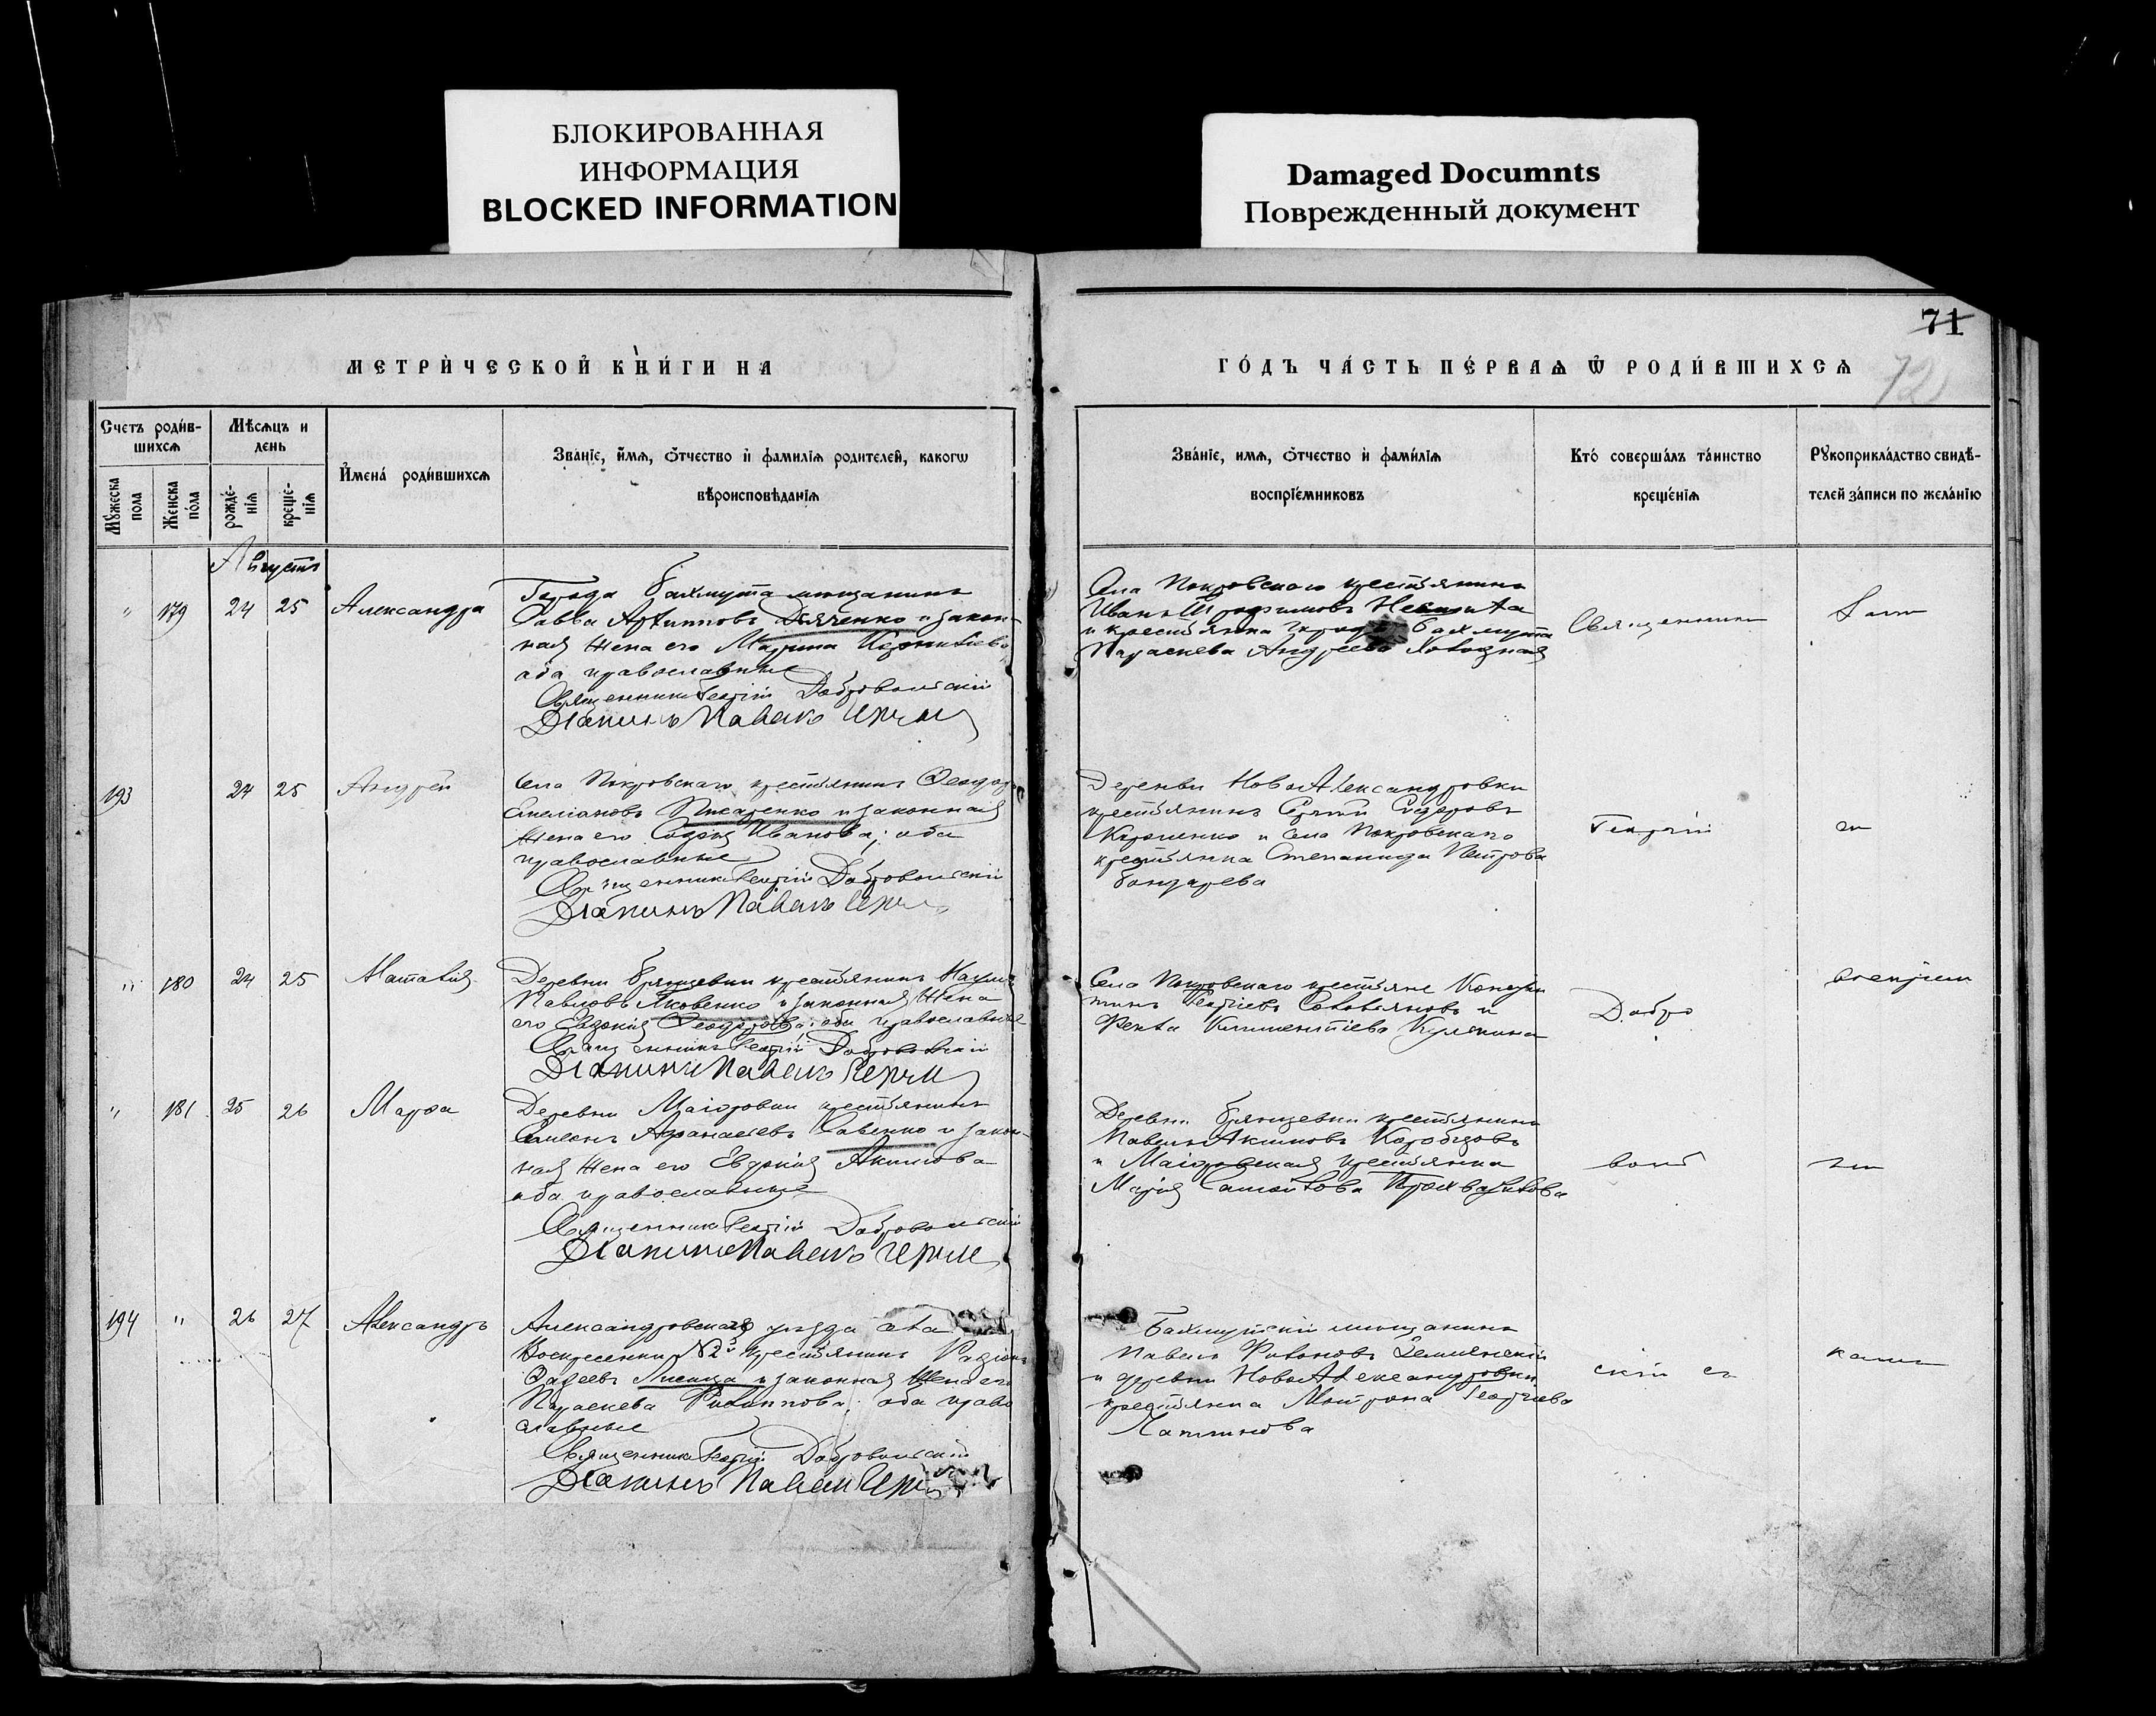 БЛОКИРОВАННАЯ
ИНФОРМАЦИЯ
BLOCKED INFORMATION
Damaged Documnts
Поврежденный документ
71
72
МЕТРИ́ЧЕСКОЙ КНИ́ГИ НА
ГО́ДЪ ЧА́СТЬ ПЕ́РВАѦ Ѿ РОДИ́ВШИХСѦ
Счетъ роди́в-
шихсѧ
Мѣсѧцъ и
день
Мꙋ́жеска
пола
Же́нска
по́ла
рожде́-
нїѧ
креще́-
нїѧ
И҆мена́ роди́вшихсѧ
Зва́нїе, и҆́мѧ, ѻ҆́тчество и҆ фами́лїѧ родителей, какогѡ
вѣроисповѣданїѧ
Зва́нїе, имѧ, ѻ҆́тчество и҆ фами́лїѧ
воспрїе́мниковъ
Кто́ соверша́лъ та́инство
креще́нїѧ
Рꙋкоприкла́дство свидѣ́-
телей за́писи по жела́нїю
Августъ
" 179 24 25 Александра
Города Бахмута мещанинъ
Савва Архиповъ Дьяченко и закон-
ная жена его Марина
оба православные
Священникъ Георгій Добровольскій
Діаконъ Павелъ
Села Покровскаго крестьянинъ
Иванъ Трофимовъ
и крестьянка города Бахмута
Параскева Андреева
Священникъ
193 24 25 Андрей
Села Покровскаго крестьянинъ Феодоръ
Емеліановъ Писаренко и законная
жена его Софія Иванова; оба
православные
Священникъ Георгій Добровольскій
Діаконъ Павелъ
Деревни НовоАлександровки
крестьянинъ Сергій Сидоровъ
и села Покровскаго
крестьянка Степанида Петрова
Бондарева
Георгій
" 180 24 25 Наталія
Деревни Брянцевки крестьянинъ Наумъ
Павловъ Яковенко и законная жена
его Евдокія Феодорова; оба православные
Священникъ Георгій Добровольскій
Діаконъ Павелъ
Села Покровскаго крестьяне Констан
тинъ Георгіевъ и
Фекла Климентіева
Добро
" 181 25 26 Марфа
Деревни Маіоровки крестьянинъ
Симеонъ Афанасіевъ Савенко и закон-
ная жена его Евдокія Акимова
оба православные
Священникъ Георгій Добровольскій
Діаконъ Павелъ
Деревни Брянцевки крестьянинъ
Павелъ Акимовъ
и Маіоровская крестьянка
Марія Самойлова
воль
194 " 26 27 Александръ
Александровскаго уѣзда села
Воскресенки №2й крестьянинъ Родіонъ
Фадеевъ Лисица и законная жена его
Параскева Филиппова; оба право
славные
Священникъ Георгій Добровольскій
Діаконъ Павелъ
Бахмутскій мещанинъ
Павелъ
и деревни НовоАлександровки
крестьянка Матрона Георгіева
скій